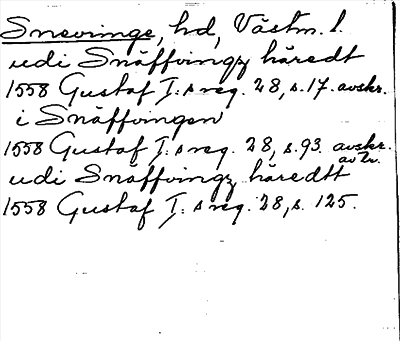 Snevringe, hd, Västm. l.
udi Snäffvingz häredt
1558 Gustaf I:s reg. 28, s. 17. avskr.
i Snäffvingen
1558 Gustaf I:s reg. 28, s. 93. avskr. av Tr.
udi Snäffvingz häredtt
1558 Gustaf I:s reg. 28, s. 125.